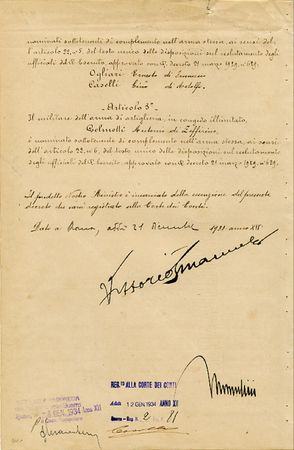 nominati sottotenenti di complemento nell'arma stessa, ai sensi del-
l'articolo 22, n° 5, del testo unico delle disposizioni sul reclutamento degli
ufficiali del R. Esercito approvato con R. decreto 21 marzo 1929, n° 629:
Ogliari Ernesto di
Caselli Gino di
Articolo 3°
Il militare dell'arma di artiglieria, in congedo illimitato,
Antonio di Zefferino,
è nominato sottotenente di complemento nell'arma stessa, ai sensi
dell'articolo 22, n° 6, del testo unico delle disposizioni sul reclutamento
degli ufficiali del R. Esercito, approvato con R. decreto 21 marzo 1929, n° 629.
Il predetto Nostro Ministro è incaricato della esecuzione del presente
decreto che sarà registrato alla Corte dei Conti.
Dato a Roma, addì 21 Dicembre 1933 anno XII
Vittorio Emanuele
Mussolini
REG.TO ALLA CORTE DEI CONTI
Addì 12 GEN. 1934 ANNO XII
Guerra - Reg. 2 Fog. 81
GEN. 1934 Anno XII